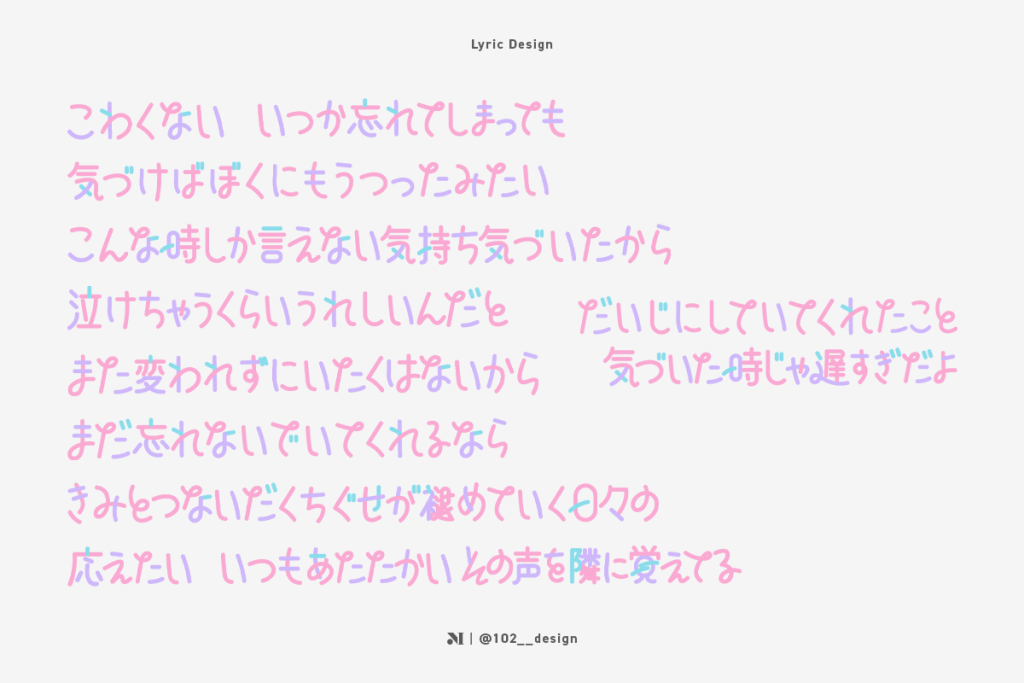 Lyric Design
こわくない　いつか忘れてしまっても
気づけばぼくにもうつったみたい
こんな時しか言えない気持ち気づいたから
泣けちゃうくらいうれしいんだと
また変われずにいたくはないから
まだ忘れないでいてくれるなら
きみとつないだくちぐせが褪めていく日々の
応えたい　いつもあたたかいその声を隣に覚えてる
だいじにしていてくれたこと
気づいた時じゃ遅すぎだだよ
@102__design